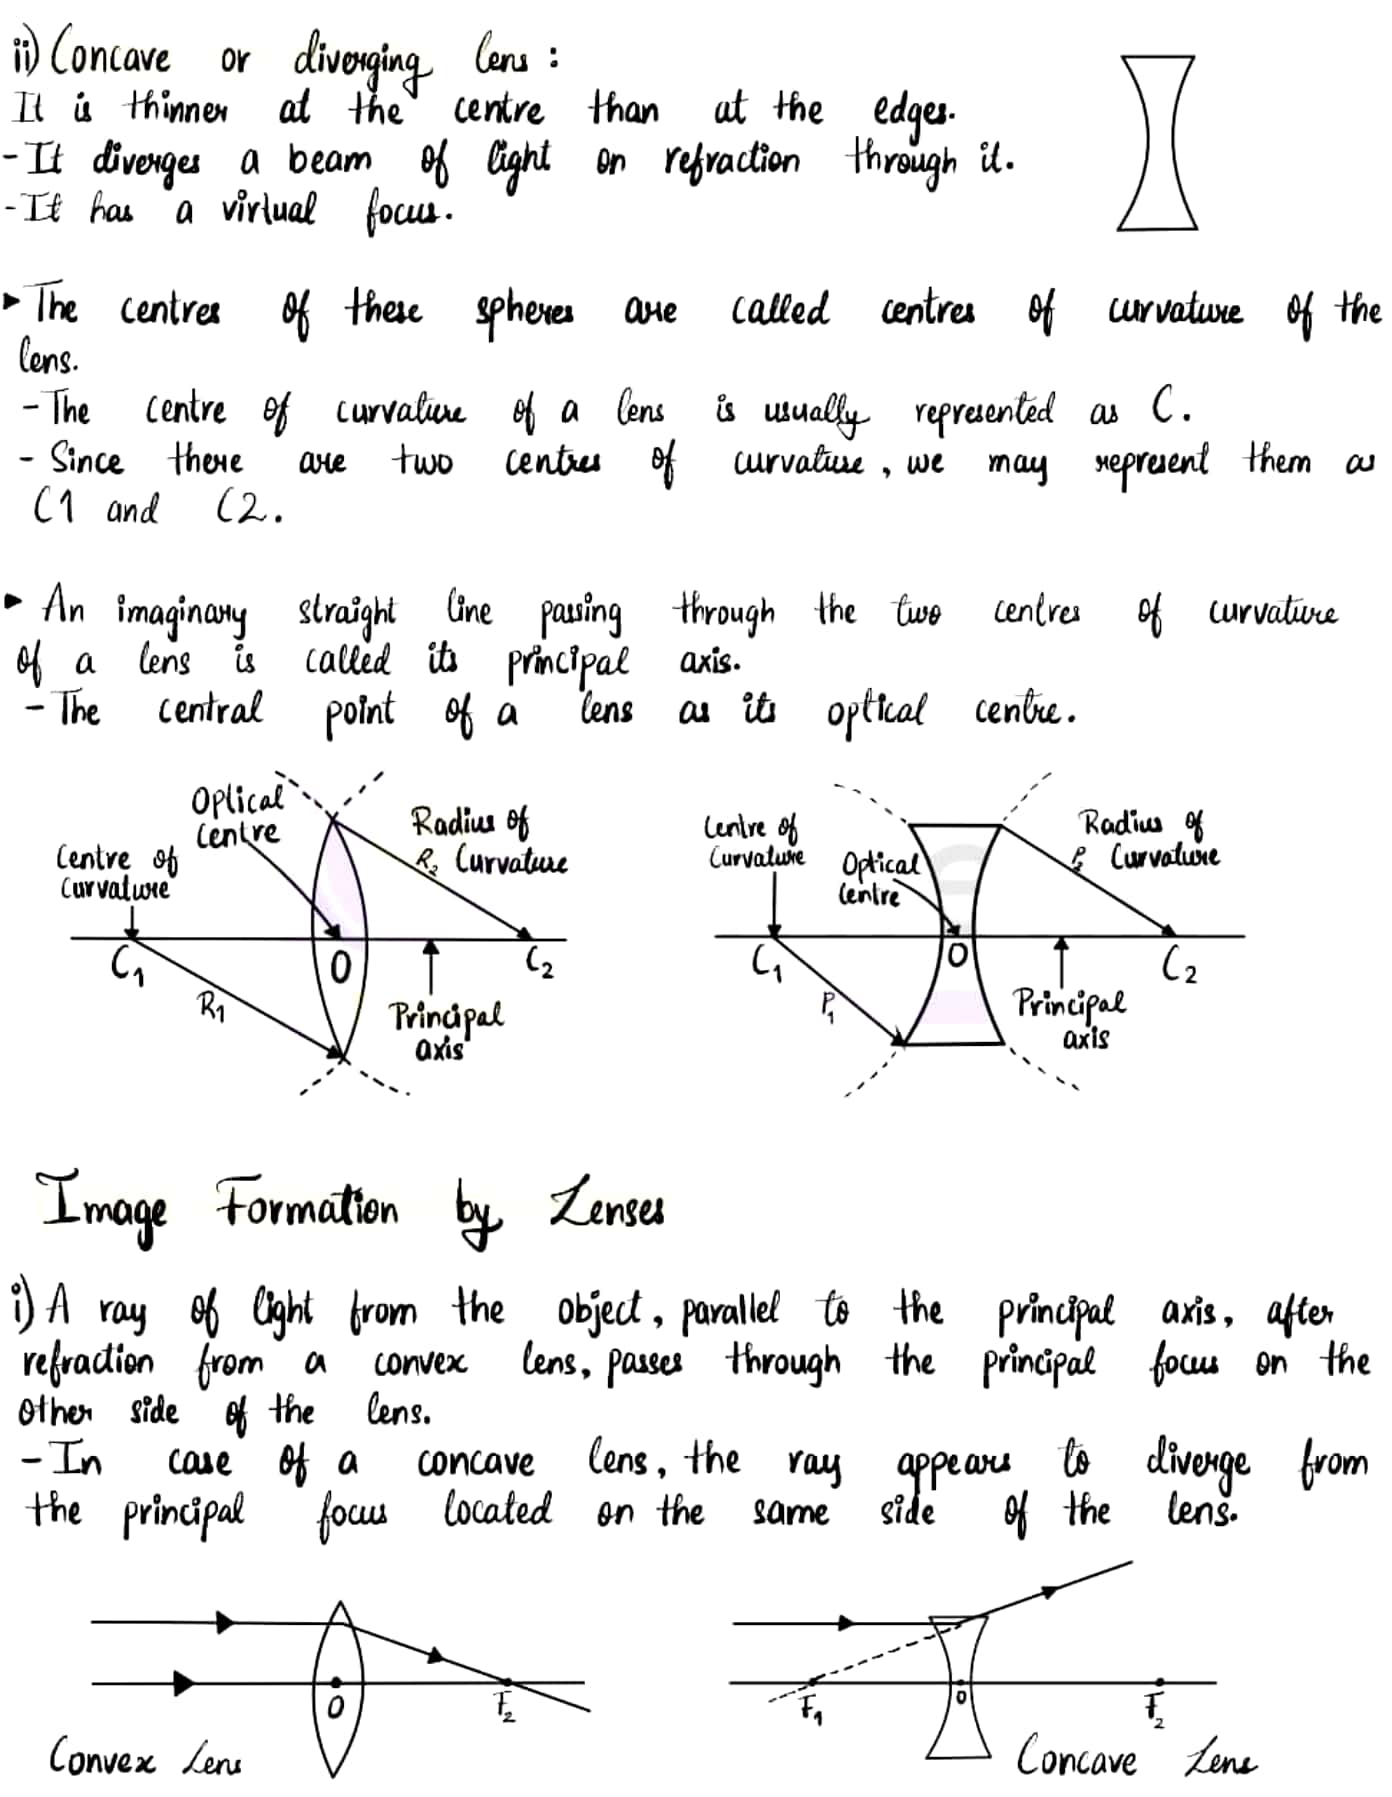 ii) Concave or diverging lens :
It is thinner at the centre than at the edges.
- It diverges a beam of light on refraction through it.
- It has a virtual focus.
▸ The centres of these spheres are called centres of curvature of the
lens.
- The centre of curvature of a lens is usually represented as C.
- Since there are two centres of curvature, we may represent them as
C1 and C2.
▸ An imaginary straight line passing through the two centres of curvature
of a lens is called its principal axis.
- The central point of a lens as its optical centre.
Optical
Centre
Centre of
Curvature
Radius of
R₂ Curvature
C₁
O
C₂
R₁
Principal
axis
Centre of
Curvature
Optical
Centre
Radius of
P₂ Curvature
C₁
O
C₂
P₁
Principal
axis
Image Formation by Lenses
i) A ray of light from the object, parallel to the principal axis, after
refraction from a convex lens, passes through the principal focus on the
other side of the lens.
- In case of a concave lens, the ray appears to diverge from
the principal focus located on the same side of the lens.
O
F₂
Convex Lens
F₁
O
F₂
Concave Lens